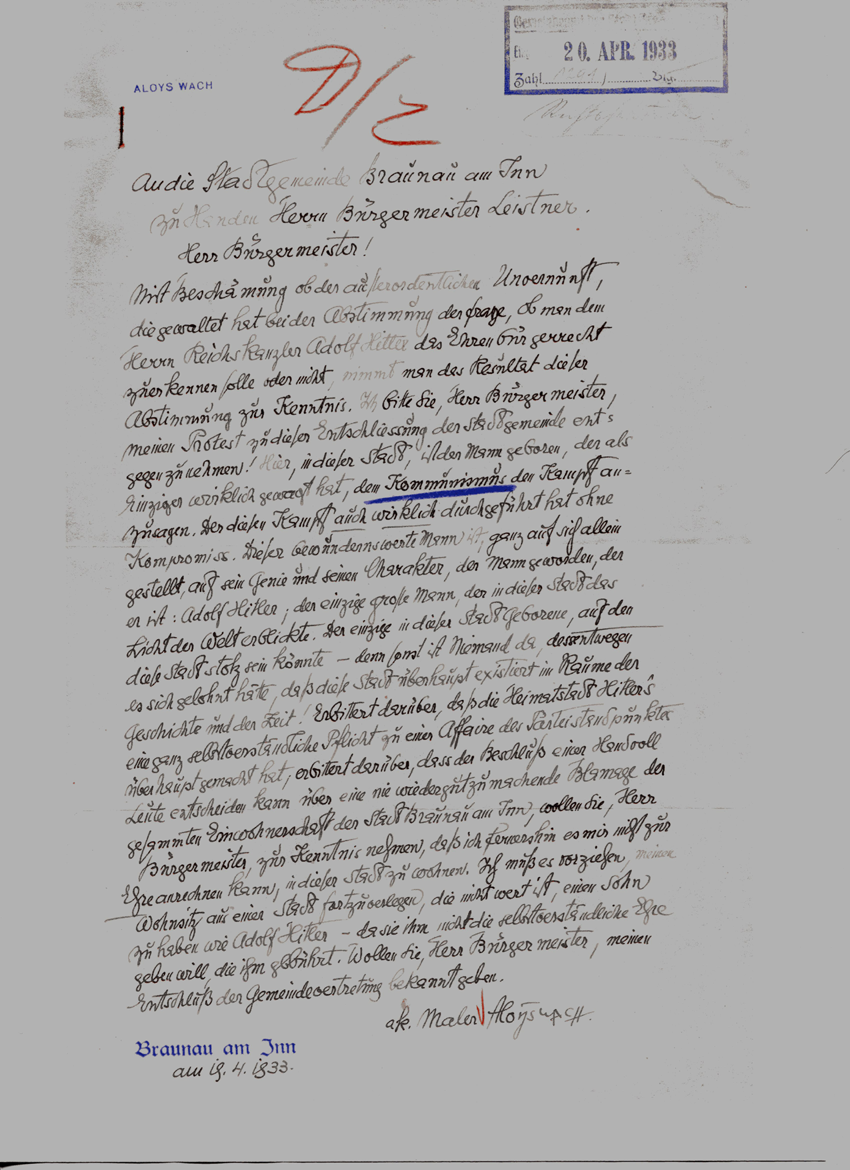 ALOYS WACH
20. APR. 1933
Zahl
An die Stadtgemeinde Braunau am Inn
zu Handen Herrn Bürgermeister Leistner.
Herr Bürgermeister!
Mit Beschämung ob der außerordentlichen Unvernunft,
die gewaltet hat bei der Abstimmung der frage, ob man dem
Herrn Reichskanzler Adolf Hitler das Ehrenbürgerrecht
zuerkennen solle oder nicht, nimmt man das Resultat dieser
Abstimmung zur Kenntnis. Ich bitte Sie, Herr Bürgermeister,
meinen Protest zu dieser Entschliessung der Stadtgemeinde ent=
gegen zu nehmen! Hier, in dieser Stadt, ist der Mann geboren, der als
Einziger wirklich gewagt hat, dem Kommunismus den Kampf an=
zusagen. Der diesen Kampf auch wirklich durchgeführt hat ohne
Kompromiss. Dieser bewundernswerte Mann ist, ganz auf sich allein
gestellt, auf sein Genie und seinen Charakter, der Mann geworden, der
er ist: Adolf Hitler; der einzige große Mann, der in dieser Stadt das
Licht der Welt erblickte. Der einzige in dieser Stadt Geborene, auf den
diese Stadt stolz sein könnte – denn sonst ist Niemand da, dessentwegen
es sich gelohnt hätte, daß diese Stadt überhaupt existiert im Raume der
Geschichte und der Zeit! Erbittert darüber, daß die Heimatstadt Hitler's
eine ganz selbstverständliche Pflicht zu einer Affaire des Parteistandpunktes
überhaupt gemacht hat, erbittert darüber, dass der Beschluß einer Handvoll
Leute entscheiden kann über eine nie wiedergutzumachende Blamage der
gesammten Einwohnerschaft der Stadt Braunau am Inn, wollen Sie, Herr
Bürgermeister, zur Kenntnis nehmen, daß ich fernerhin es mir nicht zur
Ehre anrechnen kann, in dieser Stadt zu wohnen. Ich muß es vorziehen, meinen
Wohnsitz aus einer Stadt fortzuverlegen, die nicht wert ist, einen Sohn
zu haben wie Adolf Hitler – da sie ihm nicht die selbstverständliche Ehre
geben will, die ihm gebührt. Wollen Sie, Herr Bürgermeister, meinen
Entschluß der Gemeindevertretung bekanntgeben.
ak. Maler Aloys Wach.
Braunau am Inn
am 19. 4. 1933.